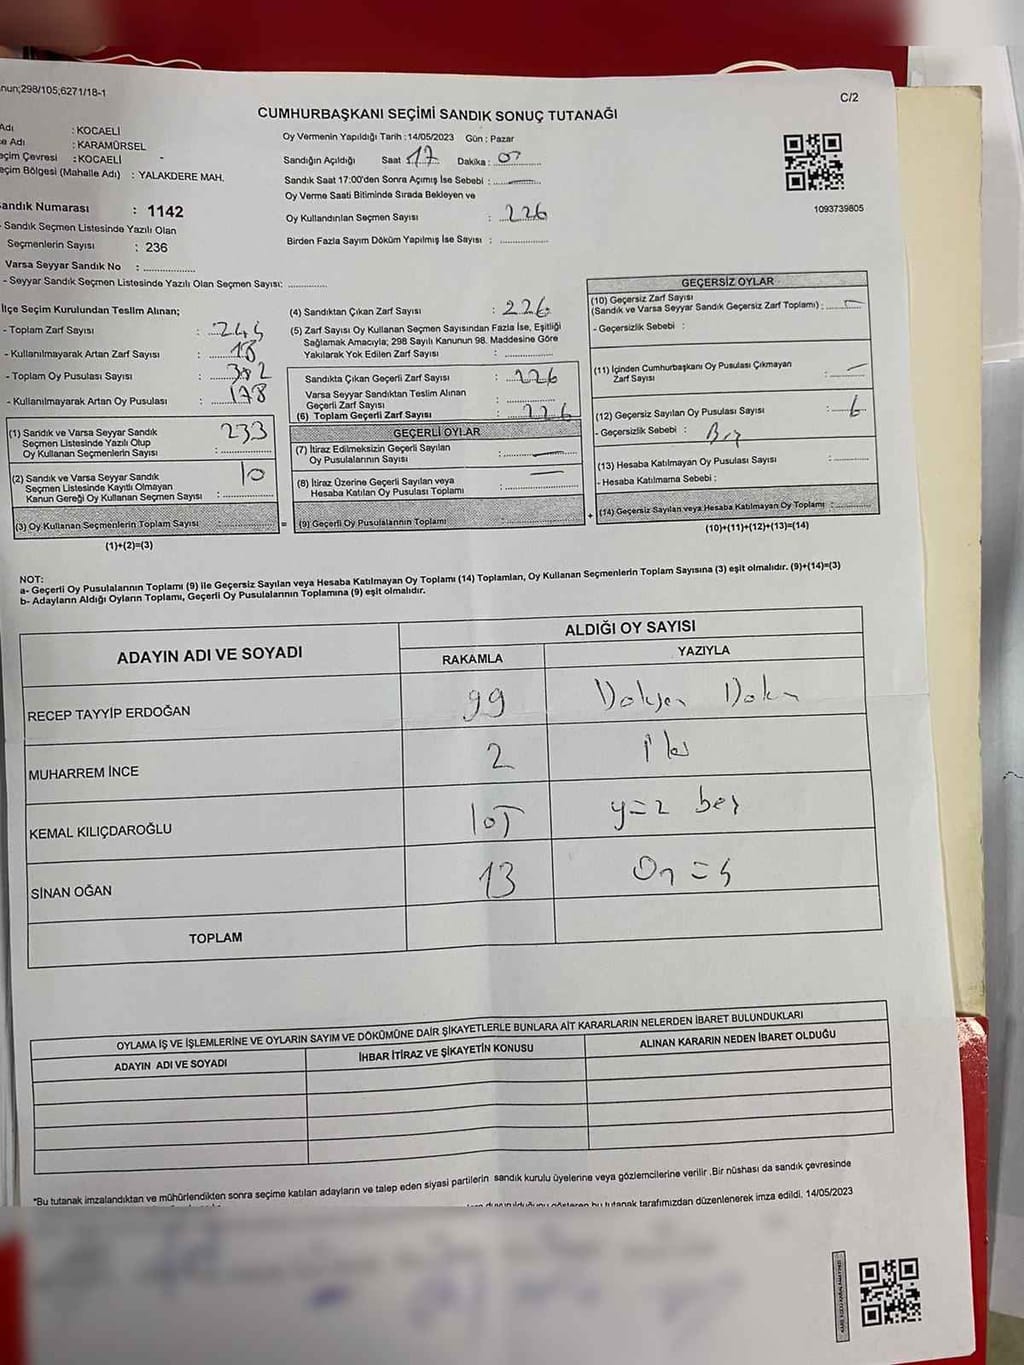 nun;298/105;6271/18-1
C/2
CUMHURBAŞKANI SEÇİMİ SANDIK SONUÇ TUTANAĞI
Adı : KOCAELİ
e Adı : KARAMÜRSEL
eçim Çevresi : KOCAELİ -
eçim Bölgesi (Mahalle Adı) : YALAKDERE MAH.
andık Numarası : 1142
- Sandık Seçmen Listesinde Yazılı Olan
Seçmenlerin Sayısı : 236
Varsa Seyyar Sandık No :
- Seyyar Sandık Seçmen Listesinde Yazılı Olan Seçmen Sayısı:
Oy Vermenin Yapıldığı Tarih : 14/05/2023 Gün : Pazar
Sandığın Açıldığı Saat 17 Dakika :
Sandık Saat 17:00'den Sonra Açımış İse Sebebi :
Oy Verme Saati Bitiminde Sırada Bekleyen ve
Oy Kullandırılan Seçmen Sayısı : 226
Birden Fazla Sayım Döküm Yapılmış İse Sayısı :
1093739805
İlçe Seçim Kurulundan Teslim Alınan;
- Toplam Zarf Sayısı :
- Kullanılmayarak Artan Zarf Sayısı : 18
- Toplam Oy Pusulası Sayısı :
- Kullanılmayarak Artan Oy Pusulası : 178
(1) Sandık ve Varsa Seyyar Sandık
Seçmen Listesinde Yazılı Olup
Oy Kullanan Seçmenlerin Sayısı : 233
(2) Sandık ve Varsa Seyyar Sandık
Seçmen Listesinde Kayıtlı Olmayan
Kanun Gereği Oy Kullanan Seçmen Sayısı : 10
(3) Oy Kullanan Seçmenlerin Toplam Sayısı :
(1)+(2)=(3)
(4) Sandıktan Çıkan Zarf Sayısı : 226
(5) Zarf Sayısı Oy Kullanan Seçmen Sayısından Fazla İse, Eşitliği
Sağlamak Amacıyla; 298 Sayılı Kanunun 98. Maddesine Göre
Yakılarak Yok Edilen Zarf Sayısı :
Sandıkta Çıkan Geçerli Zarf Sayısı : 226
Varsa Seyyar Sandıktan Teslim Alınan
Geçerli Zarf Sayısı :
(6) Toplam Geçerli Zarf Sayısı : 226
GEÇERLİ OYLAR
(7) İtiraz Edilmeksizin Geçerli Sayılan
Oy Pusulalarının Sayısı :
(8) İtiraz Üzerine Geçerli Sayılan veya
Hesaba Katılan Oy Pusulası Toplamı :
= (9) Geçerli Oy Pusulalarının Toplamı :
GEÇERSİZ OYLAR
(10) Geçersiz Zarf Sayısı
(Sandık ve Varsa Seyyar Sandık Geçersiz Zarf Toplamı) :
- Geçersizlik Sebebi :
(11) İçinden Cumhurbaşkanı Oy Pusulası Çıkmayan
Zarf Sayısı :
(12) Geçersiz Sayılan Oy Pusulası Sayısı : 6
- Geçersizlik Sebebi :
(13) Hesaba Katılmayan Oy Pusulası Sayısı :
- Hesaba Katılmama Sebebi :
+ (14) Geçersiz Sayılan veya Hesaba Katılmayan Oy Toplamı :
(10)+(11)+(12)+(13)=(14)
NOT:
a- Geçerli Oy Pusulalarının Toplamı (9) ile Geçersiz Sayılan veya Hesaba Katılmayan Oy Toplamı (14) Toplamları, Oy Kullanan Seçmenlerin Toplam Sayısına (3) eşit olmalıdır. (9)+(14)=(3)
b- Adayların Aldığı Oyların Toplamı, Geçerli Oy Pusulalarının Toplamına (9) eşit olmalıdır.
ADAYIN ADI VE SOYADI ALDIĞI OY SAYISI
RAKAMLA YAZIYLA
RECEP TAYYİP ERDOĞAN 99 Doksan Dokuz
MUHARREM İNCE 2 iki
KEMAL KILIÇDAROĞLU 105 yüz beş
SİNAN OĞAN 13 On üç
TOPLAM
OYLAMA İŞ VE İŞLEMLERİNE VE OYLARIN SAYIM VE DÖKÜMÜNE DAİR ŞİKAYETLERLE BUNLARA AİT KARARLARIN NELERDEN İBARET BULUNDUKLARI
ADAYIN ADI VE SOYADI İHBAR İTİRAZ VE ŞİKAYETİN KONUSU ALINAN KARARIN NEDEN İBARET OLDUĞU
*Bu tutanak imzalandıktan ve mühürlendikten sonra seçime katılan adayların ve talep eden siyasi partilerin sandık kurulu üyelerine veya gözlemcilerine verilir .Bir nüshası da sandık çevresinde
duyurulduğunu gösteren bu tutanak tarafımızdan düzenlenerek imza edildi. 14/05/2023